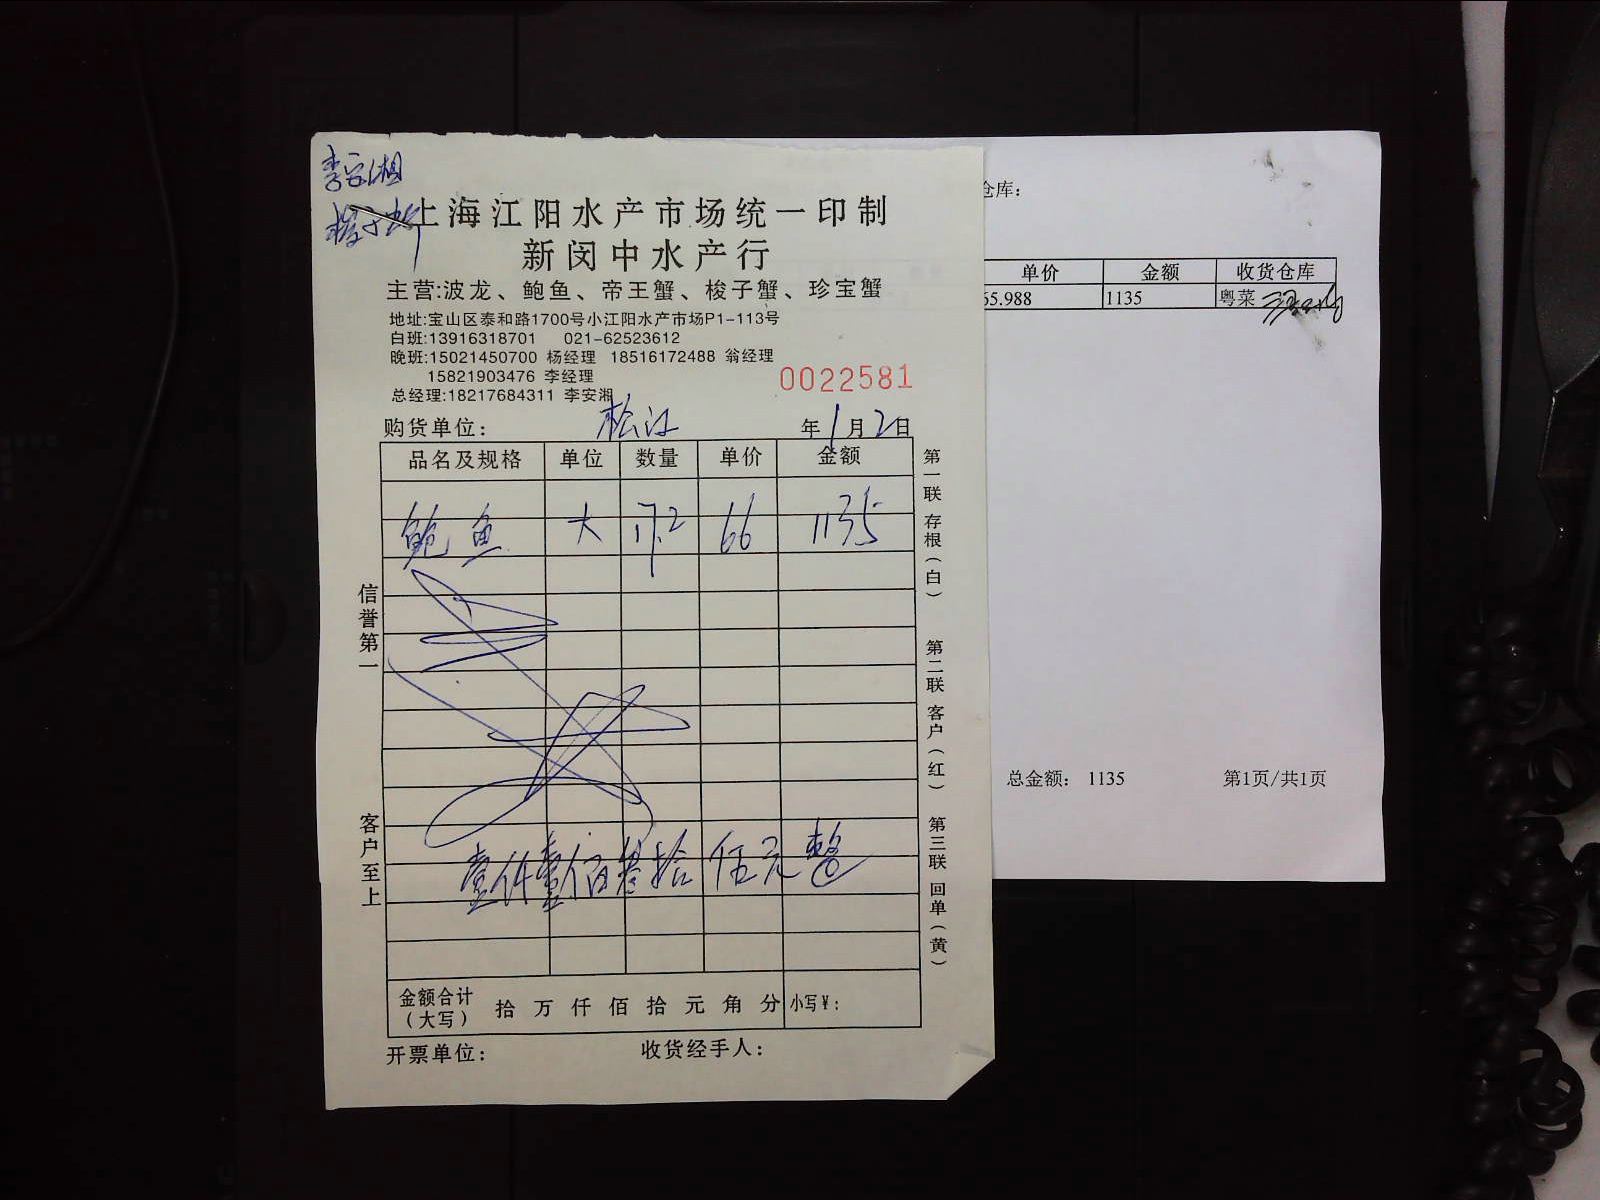 李安湘
上海江阳水产市场统一印制
新闵中水产行
主营:波龙、鲍鱼、帝王蟹、梭子蟹、珍宝蟹
地址:宝山区泰和路1700号小江阳水产市场P1-113号
白班:13916318701 021-62523612
晚班:15021450700 杨经理 18516172488 翁经理
15821903476 李经理
总经理:18217684311 李安湘
0022581
购货单位: 松江 年1月2日
品名及规格 单位 数量 单价 金额
鲍鱼 大 17.2 66 1135
壹仟壹佰叁拾伍元整
金额合计(大写) 拾 万 仟 佰 拾 元 角 分 小写¥:
开票单位: 收货经手人:
信誉第一
客户至上
第一联 存根(白)
第二联 客户(红)
第三联 回单(黄)
仓库:
单价 金额 收货仓库
65.988 1135 粤菜
总金额: 1135 第1页/共1页